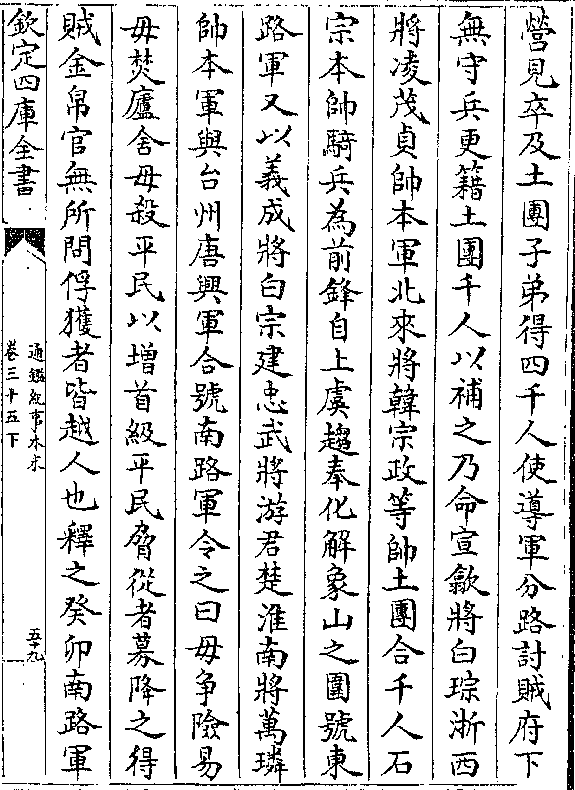 營見卒及土團子弟得四千人使導軍分路討賊府下
無守兵更籍土團千人以補之乃命宣歙將白琮浙西
將凌茂貞帥本軍北來將韓宗政等帥土團合千人石
宗本帥騎兵為前鋒自上虞趨奉化解象山之圍號東
路軍又以義成將白宗建忠武將游君楚淮南將萬璘
帥本軍與台州唐興軍合號南路軍令之曰毋爭險易
毋焚廬舍毋殺平民以增首級平民脅從者募降之得
賊金帛官無所問俘獲者皆越人也釋之癸卯南路軍
欽定四庫全書
通鑑紀事本末
卷三十五下
五十九